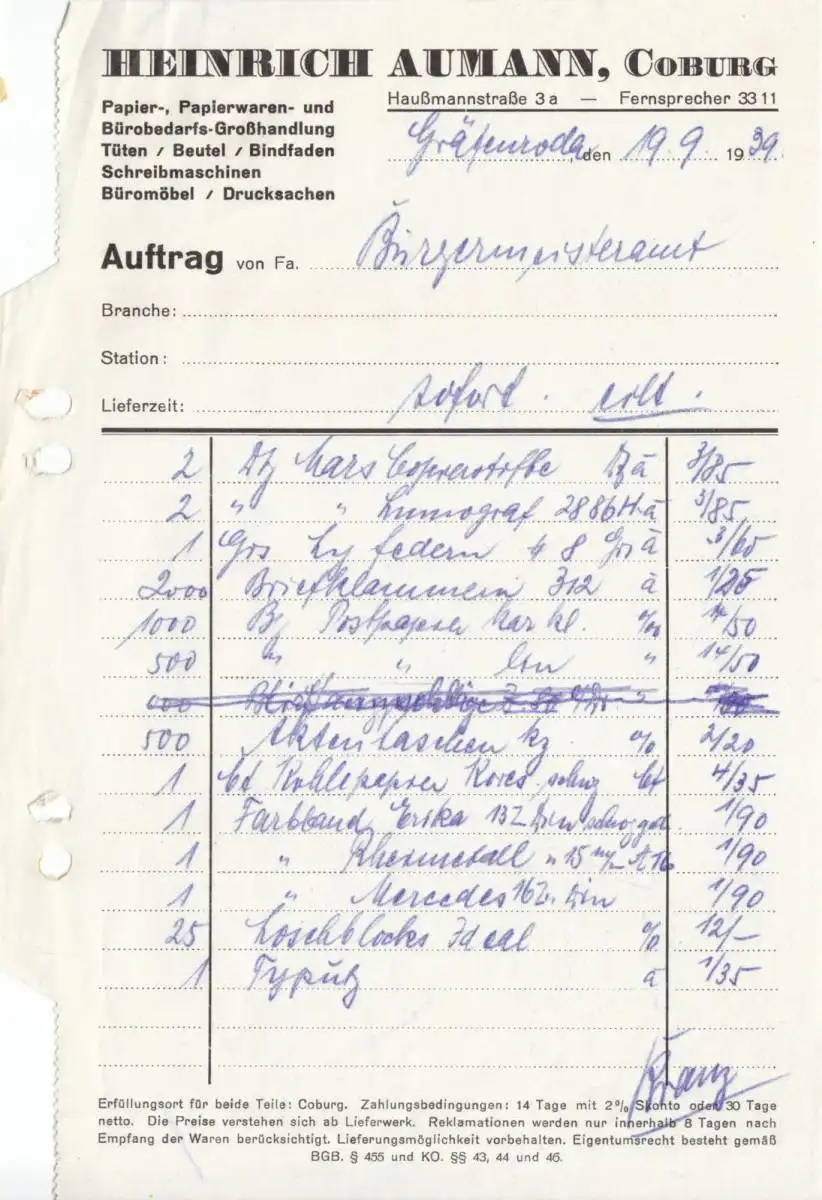 HEINRICH AUMANN, COBURG
Papier-, Papierwaren- und
Bürobedarfs-Großhandlung
Tüten / Beutel / Bindfaden
Schreibmaschinen
Büromöbel / Drucksachen
Haußmannstraße 3a — Fernsprecher 3311
Gräfenroda, den 19.9. 1939
Auftrag von Fa. Bürgermeisteramt
Branche:
Station:
Lieferzeit: sofort. eilt.
2 Dtz Mars Copierstifte Dtz à 3/85
2 " " Lumograf 2886 H à 3/85
1 Grs Ly federn 8 Grs à 3/65
2000 Briefklammern 312 à 1/25
1000 Postpapier kar kl. %00
500 " " lin " 14/50
500 Aktentaschen kz % 2/20
1 Ct Kohlepapier Kores schwz Ct 4/35
1 Farbband Erika 13 Din 1/90
1 " Rheinmetall " 15 m/m 1/90
1 " Mercedes 16 Din 1/90
25 Löschblocks Ideal % 12/—
1 Typutz à 1/35
Kranz
Erfüllungsort für beide Teile: Coburg. Zahlungsbedingungen: 14 Tage mit 2% Skonto oder 30 Tage
netto. Die Preise verstehen sich ab Lieferwerk. Reklamationen werden nur innerhalb 8 Tagen nach
Empfang der Waren berücksichtigt. Lieferungsmöglichkeit vorbehalten. Eigentumsrecht besteht gemäß
BGB. § 455 und KO. §§ 43, 44 und 46.